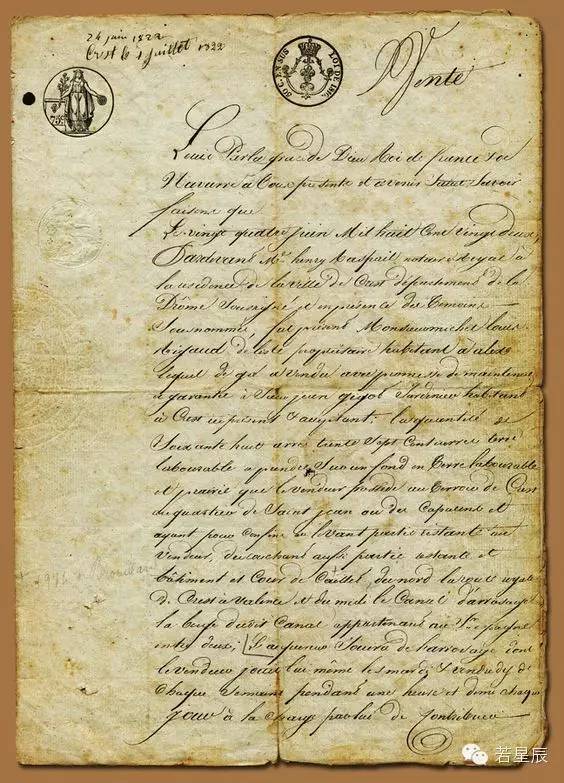 24 juin 1822
Crest le 1 juillet 1822
Vente
75c
Louis Par la grace de Dieu Roi de france & de
Navarre à Tous presents et a venir Salut Savoir
faisons que
Le vingt quatre juin Mil huit Cent vingt deux,
Pardevant Me henry Raspail notaire Royal à
la residence de la ville de Crest département de la
Drôme Soussigné et en présence des Temoins
Sousnommés, fut présent Monsieur michel louis
Rigaud propriétaire habitant à
lequel de gré a vendu avec promesse de maintenir
et garantir à Sieur jean habitant
à Crest ici présent & acceptant; la quantité de
Soixante huit ares trente Sept Centiares terre
labourable à prendre Sur un fond en terre labourable
et prairie que le vendeur possède au terroir de Crest
au quartier de Saint jean ou des Capucins et
ayant pour confins au levant partie restante au
vendeur, du couchant aussi partie restante et
bâtiment et Cour de du nord la route royale
de Crest à Valence et du midi le Canal d'arrosage
la du dit Canal appartenant au
entre deux; d'arrosage dont
le vendeur jouit lui même les mardi & vendredi de
Chaque Semaine pendant une heure et demi chaque
jour à la Charge par lui de Contribuer
若星辰